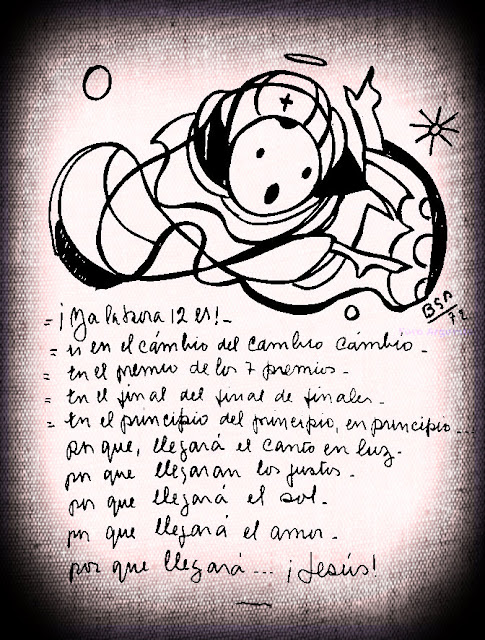 BSP
72
= ¡Ya la hora 12 es! -
= es en el cámbio del cambio cámbio -
= en el premio de los 7 premios -
= en el final del final de finales -
= en el principio del principio, en principio ...
por que, llegará el canto en luz -
por que llegaran los justos -
por que llegará el sol -
por que llegará el amor -
por que llegará ... ¡Jesús!